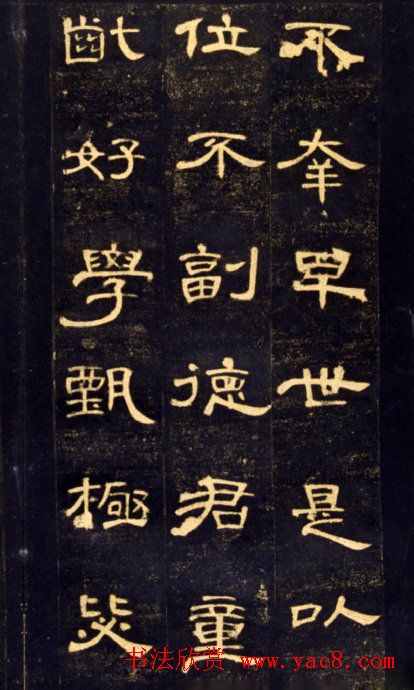 不幸早世是以
位不副德君童
齔好學甄極毖
书法欣赏 www.yac8.com